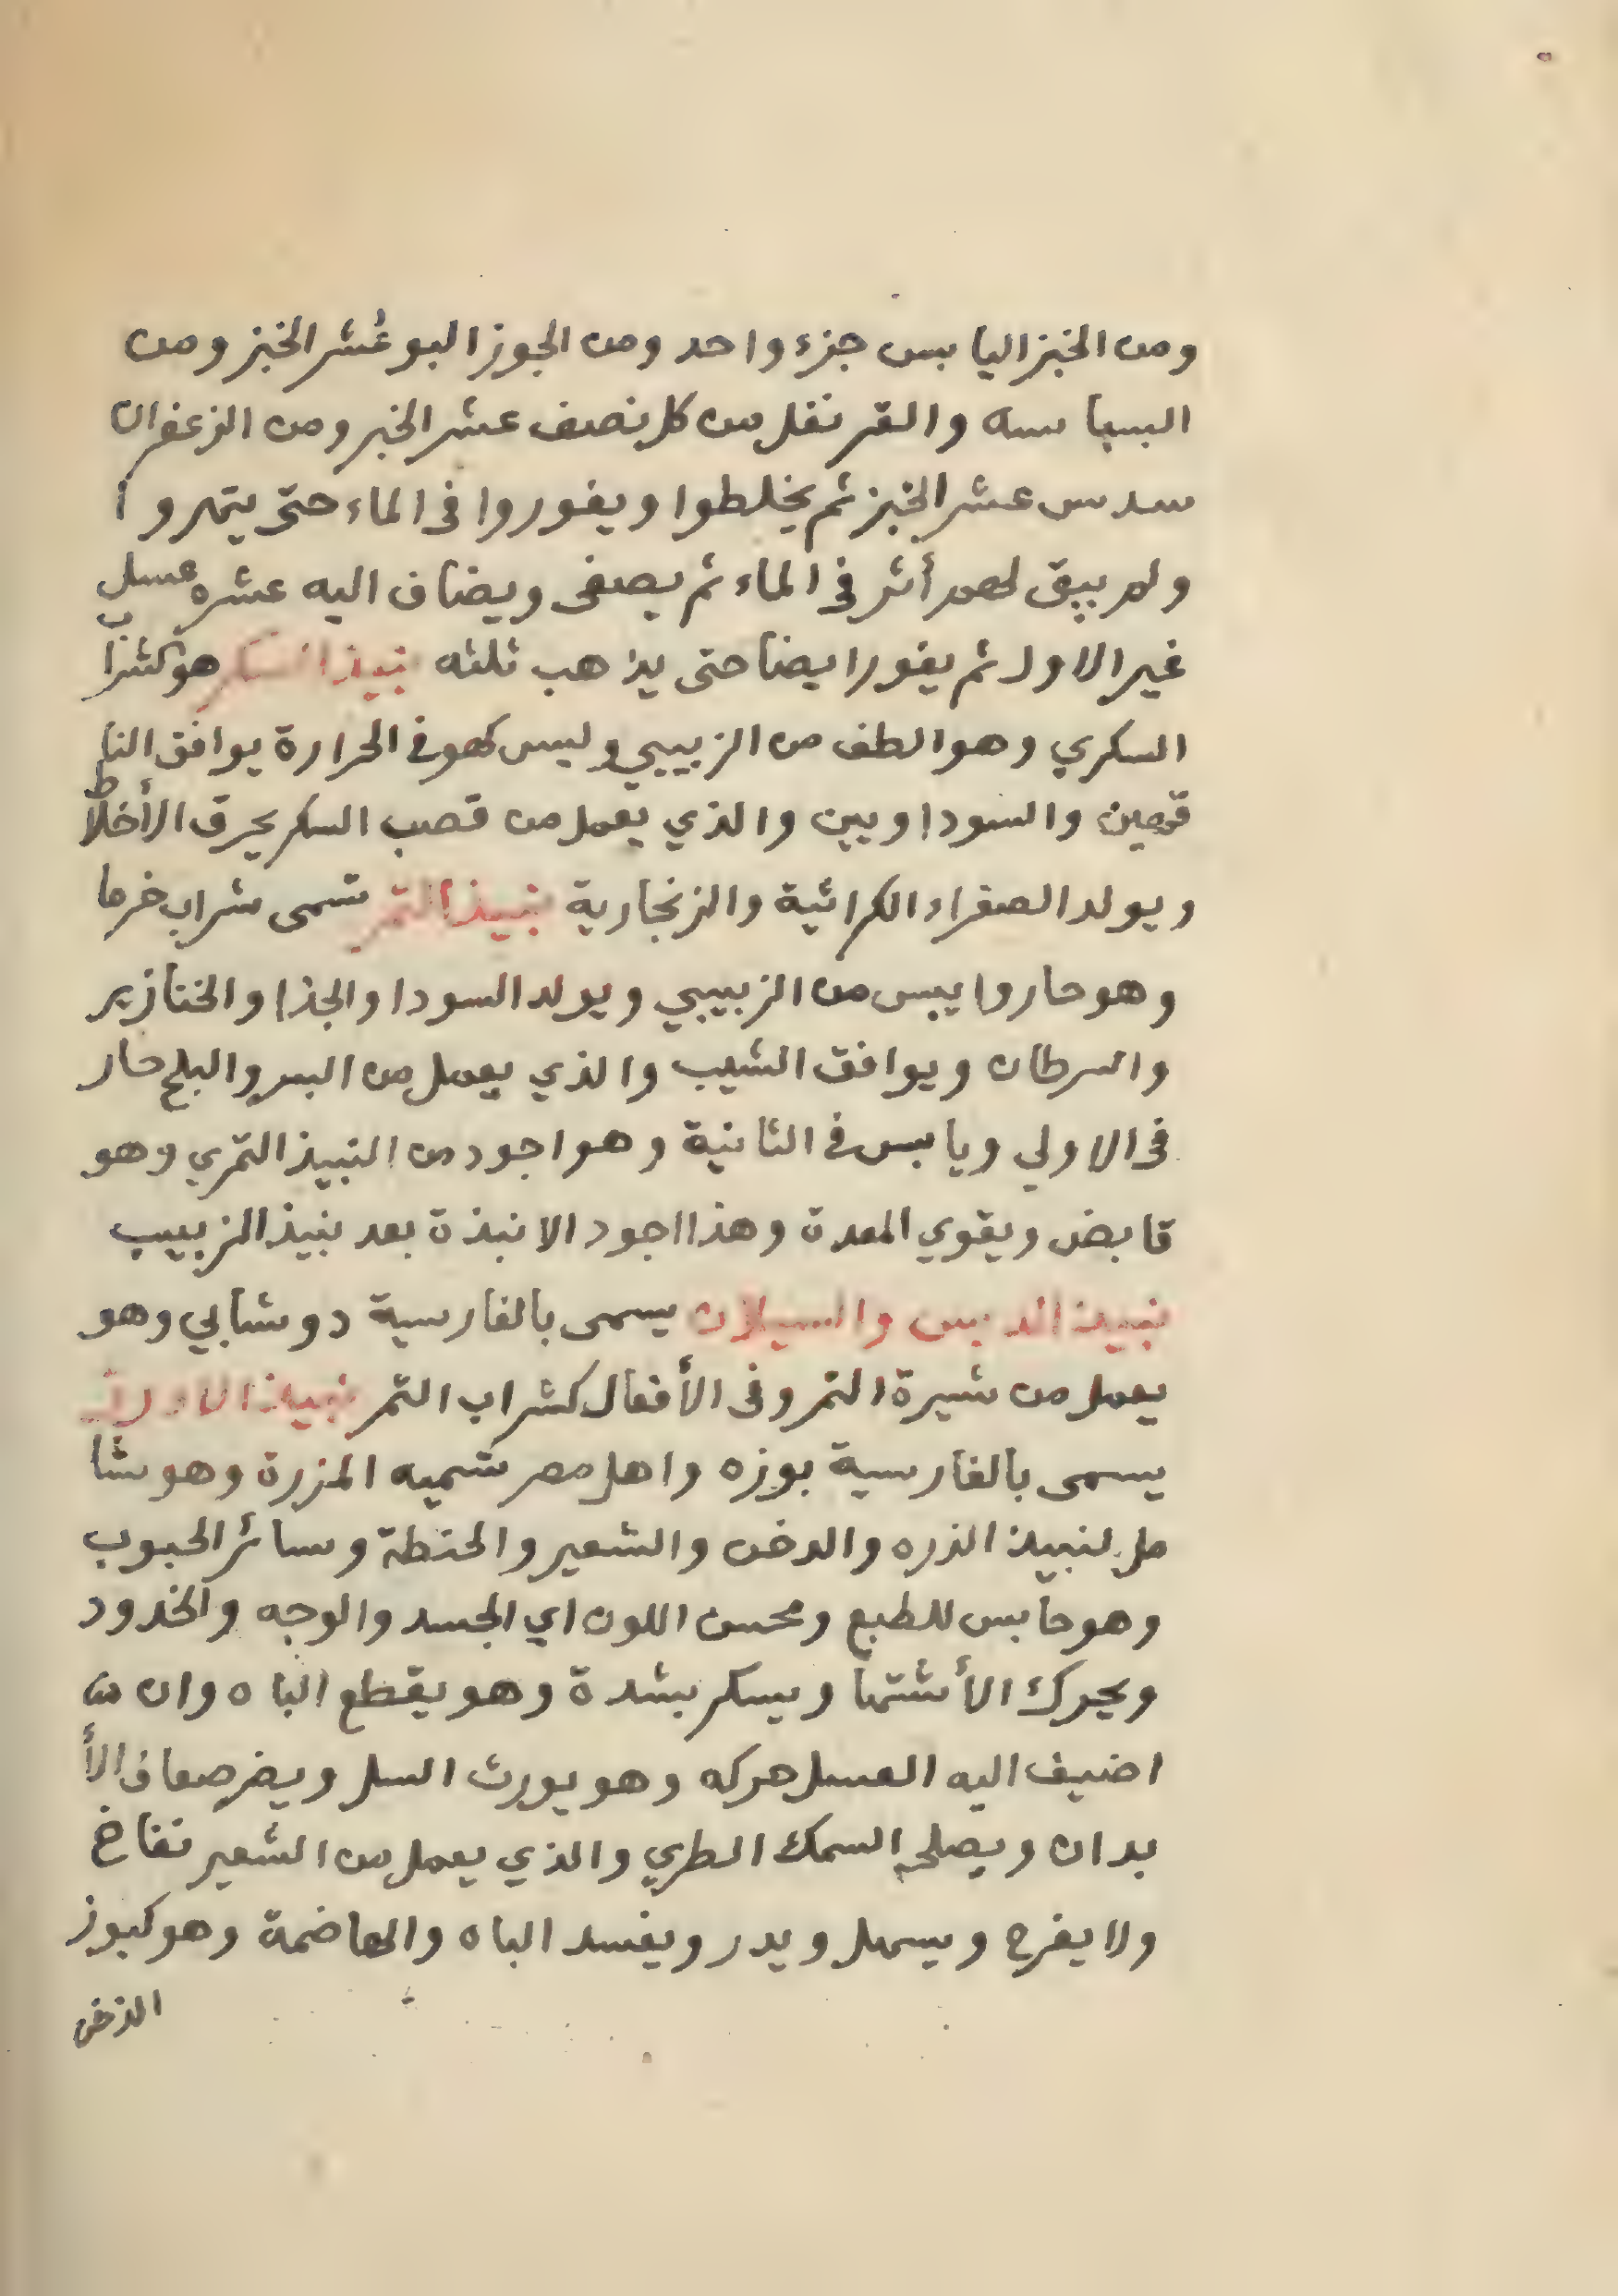 ومن الخبز اليابس جزء واحد ومن الجوز البو عُشر الخبز ومن
البسباسه والقرنفل من كل نصف عشر الخبر ومن الزعفران
سدس عشر الخبز ثم يخلطوا ويفوروا فى الماء حتى يتهروا
ولم يبق لهم أثر فى الماء ثم يصفى ويضاف اليه عشره عسل
غير الاول ثم يفور ايضا حتى يذهب ثلثه نبيذ السكر هو كشراب
السكري وهو الطف من الزبيبي وليس كهو فى الحرارة يوافق النا
قهين والسوداويين والذي يعمل من قصب السكر يحرق الأخلاط
ويولد الصفراء الكراثية والزنجارية نبيذ التمر تسمى شراب خرما
وهو حار وايبس من الزبيبي ويولد السودا والجذا والخنازير
والسرطان ويوافق الشيب والذي يعمل من البسر والبلح حار
فى الاولي ويابس فى الثانية وهو اجود من النبيذ التمري وهو
قابض ويقوي المعدة وهذا اجود الانبذة بعد نبيذ الزبيب
نبيذ الدبس والسيلان يسمى بالفارسية دوشابي وهو
يعمل من شيرة التمر وفى الأفعال كشراب التمر نبيذ
يسمى بالفارسية بوزه واهل مصر تسميه المزرة وهو شا
مل لنبيذ الذره والدخن والشعير والحنطة وسائر الحبوب
وهو حابس للطبع ومحسن اللون اي الجسد والوجه والخدود
ويحرك الأشتها ويسكر بشدة وهو يقطع الباه وان
اضيف اليه العسل حركه وهو يورث السل ويضر ضعاف الأ
بدان ويصلحه السمك الطري والذي يعمل من الشعير نفاخ
ولا يفرح ويسهل ويدر ويفسد الباه والهاضمة وهو كبوز
الدخن